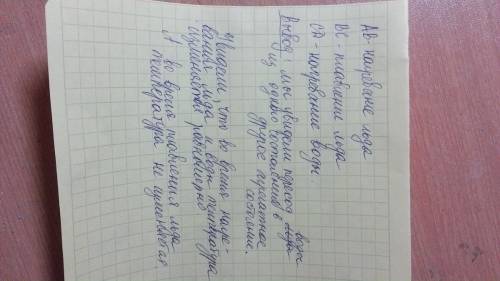 АВ - нагреване льда
ВС - плавление льда
СД - нагревание воды.
Вывод: мы увидели переход воды
из одного состояния в
другое агрегатное
состояние.
Увидели, что во время нагре-
вания льда и воды температура
изменяется равномерно
А во время плавления льда
температура не изменяется.